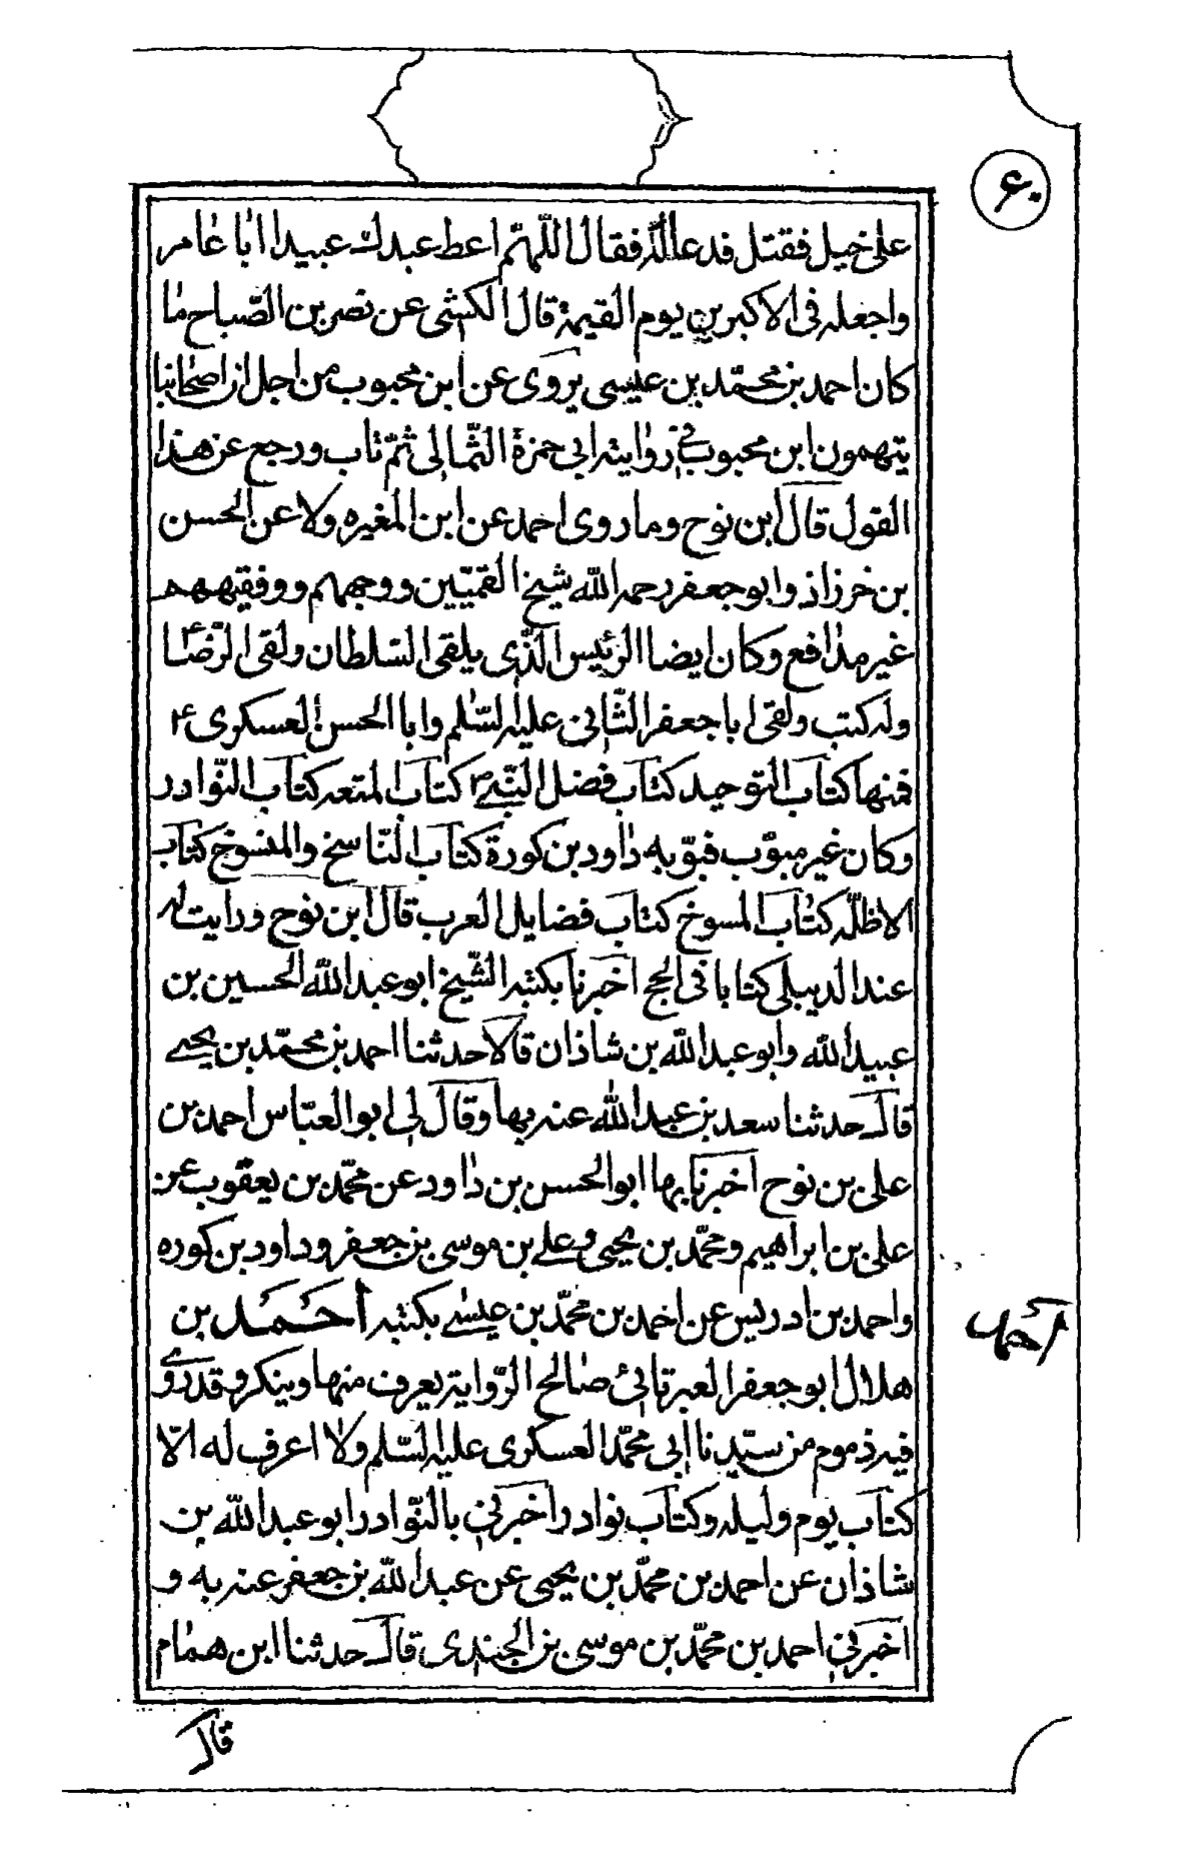 ۶۰
على خيل فقتل فدعا له فقال اللّهمّ اعط عبدك عبيدا ابا عامر
واجعله فى الاكبرين يوم القيمة قال الكشى عن نصر بن الصّباح ما
كان احمد بن محمّد بن عيسى يروى عن ابن محبوب من اجل ان اصحابنا
يتهمون ابن محبوب في روايته ابى حمزة الثّمالى ثمّ تاب ورجع عن هذا
القول قال ابن نوح وما روى احمد عن ابن المغيره ولا عن الحسن
بن خرزاذ وابو جعفر رحمه الله شيخ القميّين ووجههم ووفقيههم
غير مدافع وكان ايضا الرّئيس الّذى يلقى السّلطان ولقى الرّضا ع
وله كتب ولقى ابا جعفر الثّانى عليه السّلم وابا الحسن العسكرى ع
فمنها كتاب التوحيد كتاب فضل النّبي ص كتاب المتعه كتاب النّوادر
وكان غير مبوّب فبوّبه داود بن كورة كتاب النّاسخ والمنسوخ كتاب
الاظلّه كتاب المسوخ كتاب فضايل العرب قال ابن نوح ورايت له
عند الدبيلى كتابا فى الحج اخبرنا بكتبه الشّيخ ابو عبد الله الحسين بن
عبيد الله وابو عبد الله بن شاذان قالا حدثنا احمد بن محمّد بن يحيي
قال حدثنا سعد بن عبد الله عنه بها وقال لى ابو العبّاس احمد بن
على بن نوح اخبرنا بها ابو الحسن بن داود عن محمّد بن يعقوب عن
على بن ابراهيم ومحمّد بن يحيى وعلي بن موسى بن جعفر وداود بن كوره
واحمد بن ادريس عن احمد بن محمّد بن عيسي بكتبه أَحْمَد بن
احمد
هلال ابو جعفر العبرتائى صالح الرّواية يعرف منها وينكر وقد روي
فيه ذموم من سيّدنا ابى محمّد العسكرى عليه السّلم ولا اعرف له الّا
كتاب يوم وليله وكتاب نوادر اخبرني بالنّوادر ابو عبد الله بن
شاذان عن احمد بن محمّد بن يحيى عن عبد الله بن جعفر عنه به و
اخبرني احمد بن محمّد بن موسى بن الجندى قال حدثنا ابن همام
قال